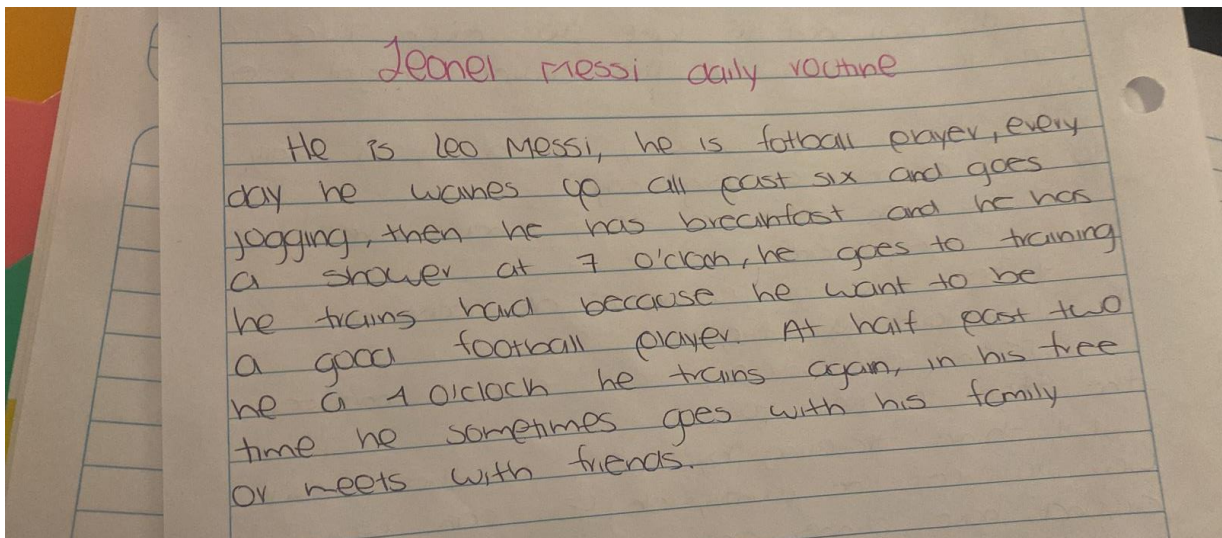 Leonel Messi daily routine
He is leo Messi, he is fotball player, every
day he wakes up all past six and goes
jogging, then he has breakfast and he has
a shower at 7 o'clock, he goes to training
he trains hard because he want to be
a good football player. At half past two
he a 4 o'clock he trains again, in his free
time he sometimes goes with his family
or meets with friends.